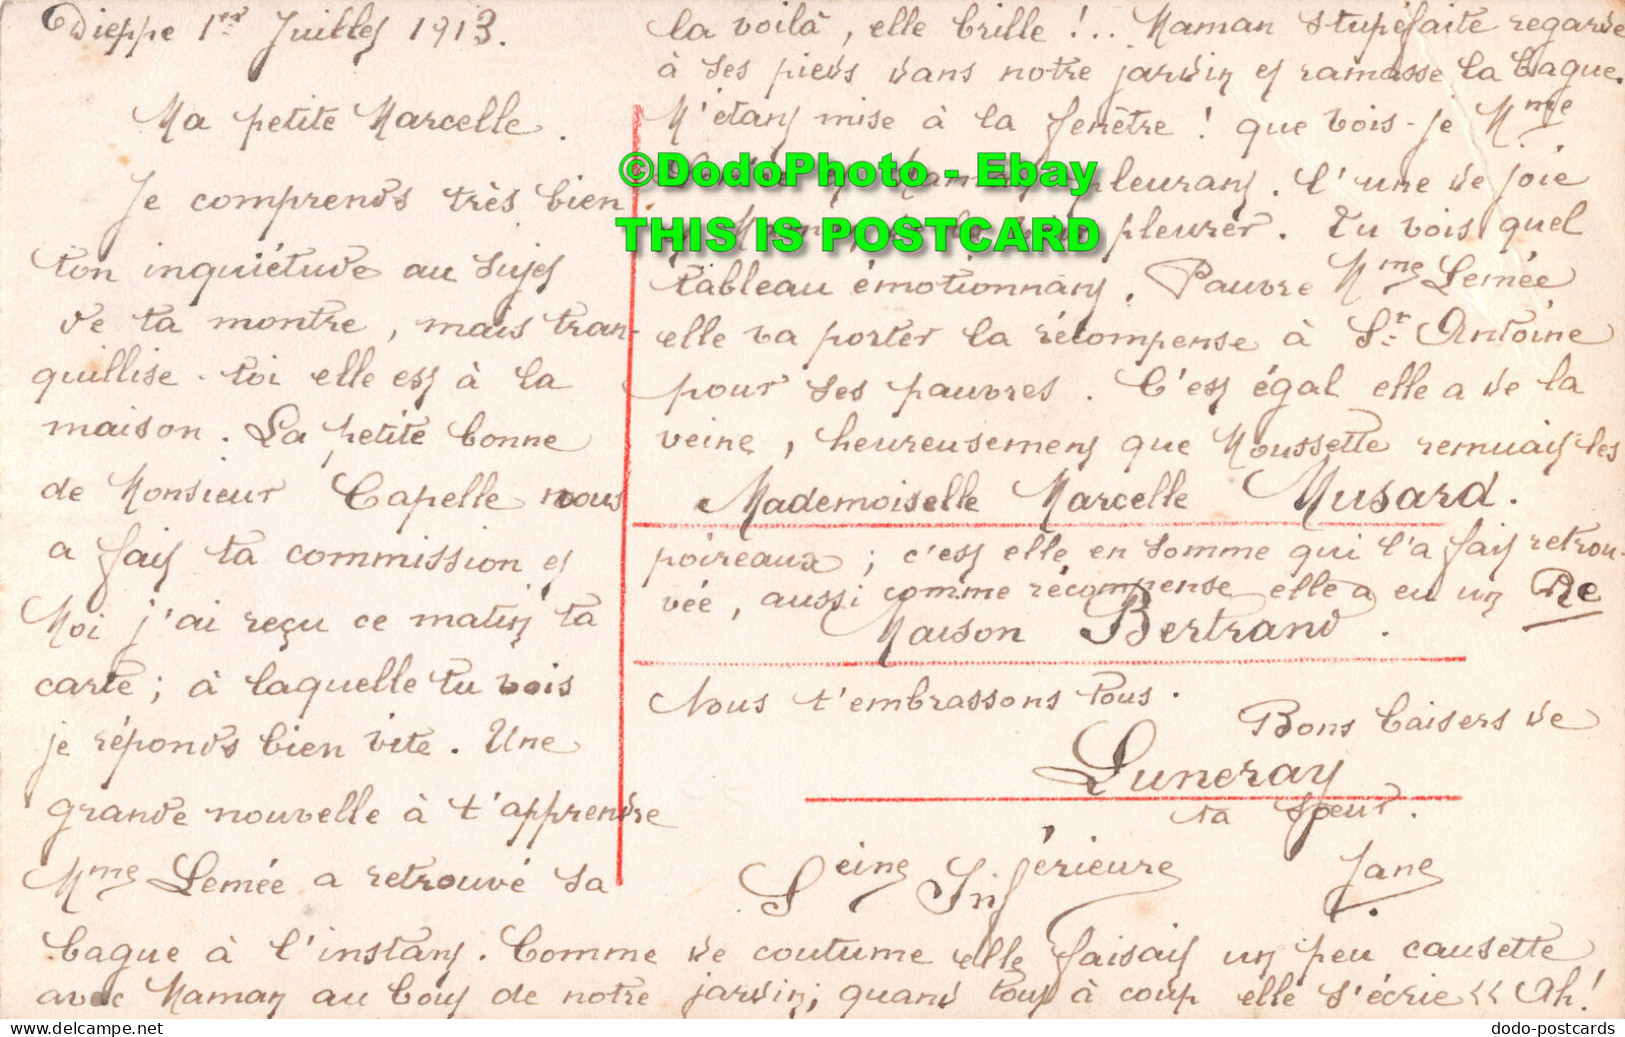 Dieppe 1er Juillet 1913.
Ma petite Marcelle.
Je comprends très bien
ton inquiétude au sujet
de ta montre, mais tran-
quillise-toi elle est à la
maison. La petite bonne
de Monsieur Capelle nous
a fait ta commission et
Moi j'ai reçu ce matin ta
carte ; à laquelle tu vois
je réponds bien vite. Une
grande nouvelle à t'apprendre
Mme Lemée a retrouvé sa
bague à l'instant. Comme de coutume elle faisait un peu causette
avec Maman au bout de notre jardin, quand tout à coup elle s'écrie << Ah!
la voilà, elle brille !.. Maman stupéfaite regarde
à ses pieds dans notre jardin et ramasse la bague.
M'étant mise à la fenêtre ! que vois-je Mme
Maman pleurant. l'une de joie
pleurer. Tu vois quel
tableau émotionnant. Pauvre Mme Lemée
elle va porter la récompense à St. Antoine
pour ses pauvres. C'est égal elle a de la
veine, heureusement que Moussette remuait les
poireaux ; c'est elle en somme qui l'a fait retrou-
vée, aussi comme récompense elle a eu un Re
Nous t'embrassons tous.
Bons baisers de
ta soeur.
Jane
Mademoiselle Marcelle Musard.
Maison Bertrand.
Luneray
Seine Inférieure
©DodoPhoto - Ebay
THIS IS POSTCARD
delcampe.net
dodo-postcards